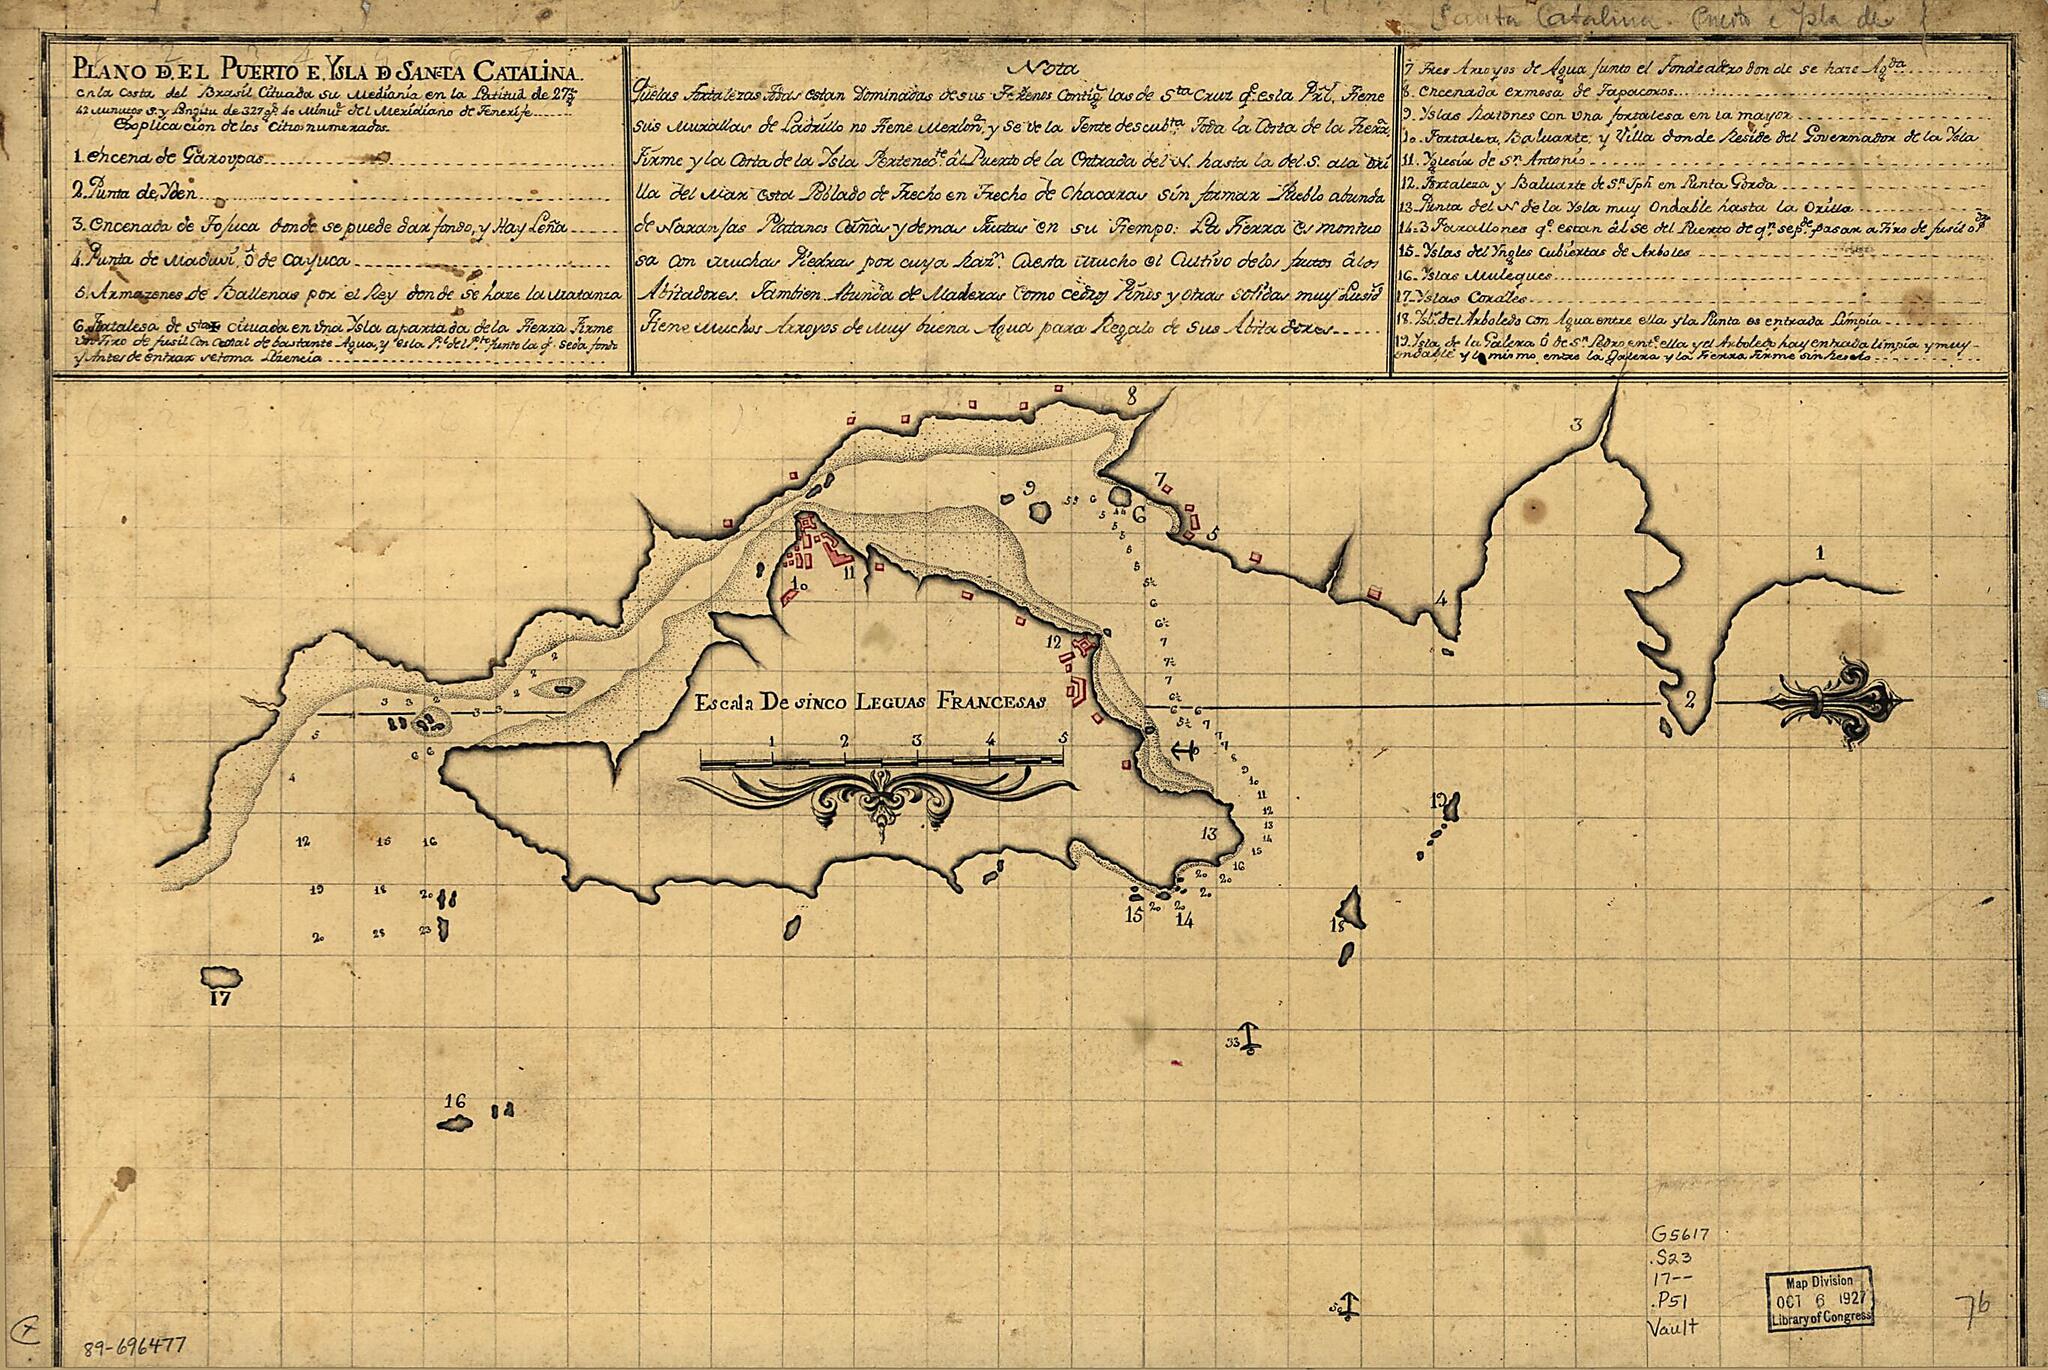 Santa Catalina. Puerto e Ysla de
PLANO DEL PUERTO E YSLA D SANTA CATALINA.
en la costa del Brasil Cituada su Mediania en la Latitud de 27g.
42 Minutos S. y Longitu de 327 g. 40 Minut. del Meridiano de Tenerife
Explicacion de los Citios numerados.
1. encena de Garoupas
2. Punta de Yden
3. Encenada de Tosuca donde se puede dar fondo, y Hay Leña
4. Punta de Maduvi, ó de Cayuca
5. Armazenes de Ballenas por el Rey donde se haze la Matanza
6. Fortalesa de Sta ✠ Cituada en una Ysla apartada de la Tierra Firme
un Tiro de fusil Con Canal de bastante Agua, y es la Pl. del Pto. junto la ql. se da fondo
y Antes de entrar se toma Licencia
Nota
Quelas fortalezas todas estan Dominadas de sus Terrenos Contigs. las de Sta Cruz qe. es la Prl. Tiene
sus Murallas de Ladrillo no Tiene Merlons. y se ve la Jente descubta. Toda la Costa de la Tierra
Firme y la Costa de la Ysla Pertenecte. al Puerto de la Entrada del N. hasta la del S. a la Ori
lla del Mar esta Poblado de Trecho en Trecho de Chacaras sin formar Pueblo abunda
de Naranjas Platanos Cañas y demas frutas en su Tiempo: La Tierra es montuo
sa con Muchas Piedras por cuya Razn. Cuesta Mucho el Cultivo de los frutos â los
Abitadores. Tambien Abunda de Maderas Como Cedros Piños y otras solidas muy
Tiene Muchos Arroyos de Muy buena Agua para Regalo de sus Abitadores
7 Tres Arroyos de Agua junto el Fondeadero donde se haze Agda
8. encenada ermosa de Tapacoros
9. Yslas Ratones con una fortalesa en la mayor
10. Fortaleza, Baluarte, y Villa donde Reside del Governador de la Ysla
11. Yglesia de Sn Antonio
12. Fortaleza y Baluarte de Sn. Jph. en Punta Gorda
13. Punta del N. de la Ysla muy Ondable hasta la Orilla
14. 3 Farallones qe. estan âl Se del Puerto de qn. se pde. pasar a Tiro de fusil
15. Yslas del Yngles Cubiertas de Arboles
16. Yslas Muleques
17. Yslas Corales
18. Ysla. del Arboledo con Agua entre ella y la Punta es entrada Limpia
19. Ysla de la Galera Ó de Sn. Pedro ente. ella y el Arboledo hay entrada limpia y muy
ondable y lo mismo entre la Galera y la Tierra Firme sin
8
3
7
9
6
5
1
10
11
4
12
2
ESCALA DE SINCO LEGUAS FRANCESAS
1 2 3 4 5
19
13
18
15
14
17
16
5
4
12 15 16
19 18 20
20 28 23
33
50
G5617
.S23
17--
.P51
Vault
Map Division
OCT 6 1927
Library of Congress
76
89-696477